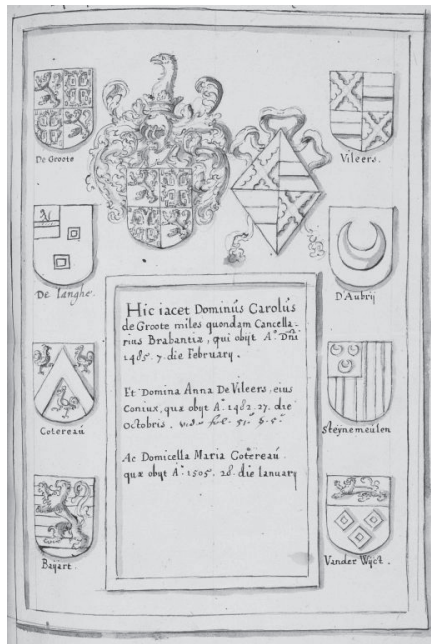 De Groote
Vileers.
De Langhe.
D'Aubrij
Cotereaú
Steÿnemeulen
Baÿart.
Vander Wÿct.
Hic iacet Dominús Carolús
de Groote miles quondam Cancella-
rius Brabantiæ, qui obÿt Aº. Dñi
1485. 7. die February.
Et Domina Anna De Vileers, eius
Coniux, quæ obÿt Aº. 1482. 27. die
Octobris.
Ac Domicella Maria Cotereaú
quæ obÿt Aº. 1505. 28. die Ianuary